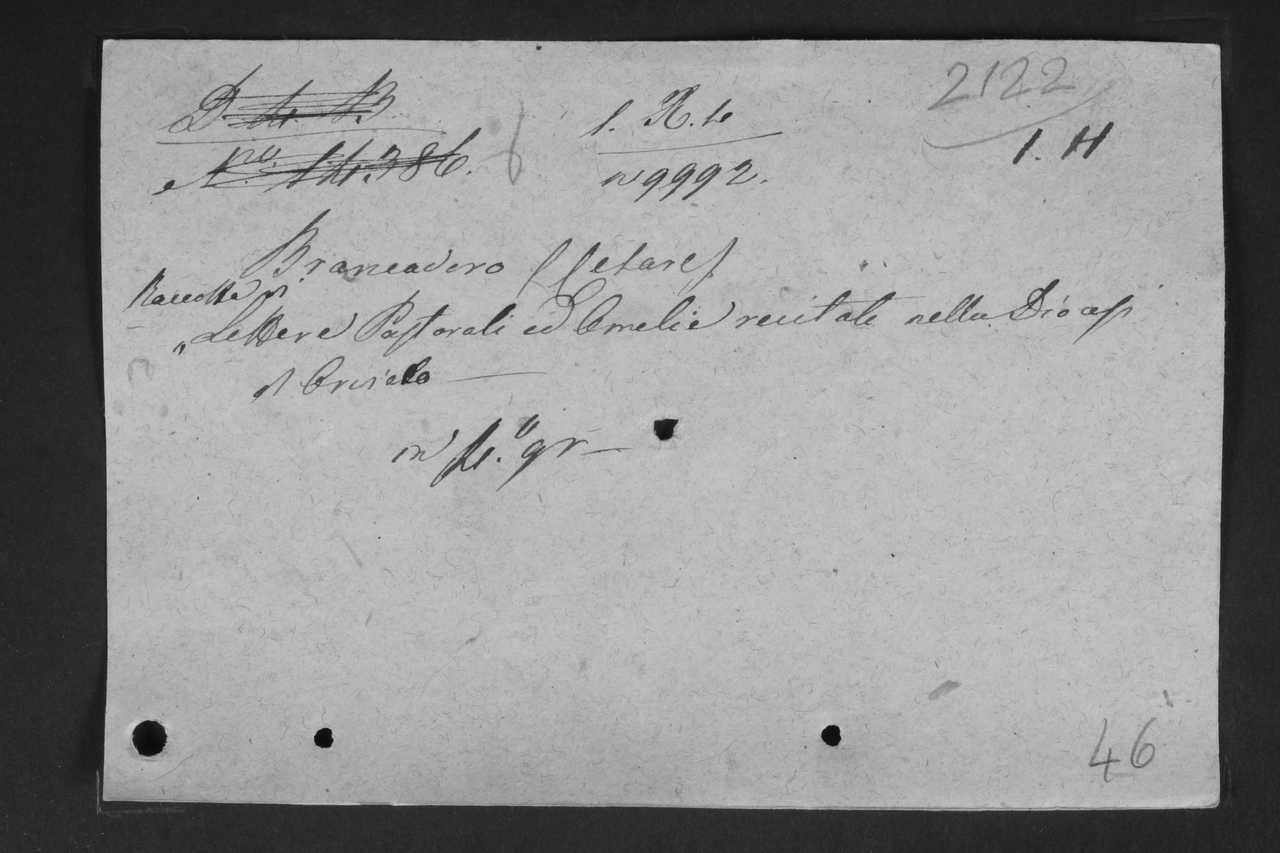 D. 4. B
2122
1. H
N.º 14.386.
n 9992.
Brancadoro (Cesare)
Raccolta di
„Lettere Pastorali ed Omelie recitate nella Diocesi
di Orvieto
in gr
46